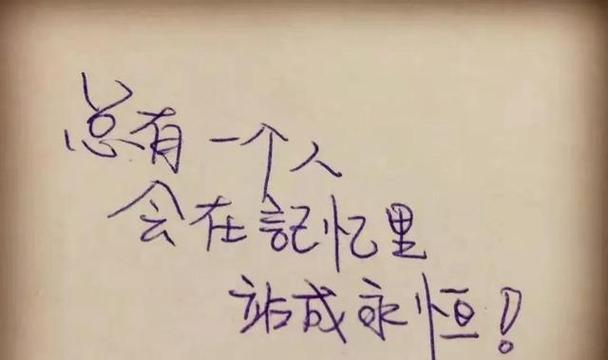 总有一个人
会在記忆里
站成永恒！